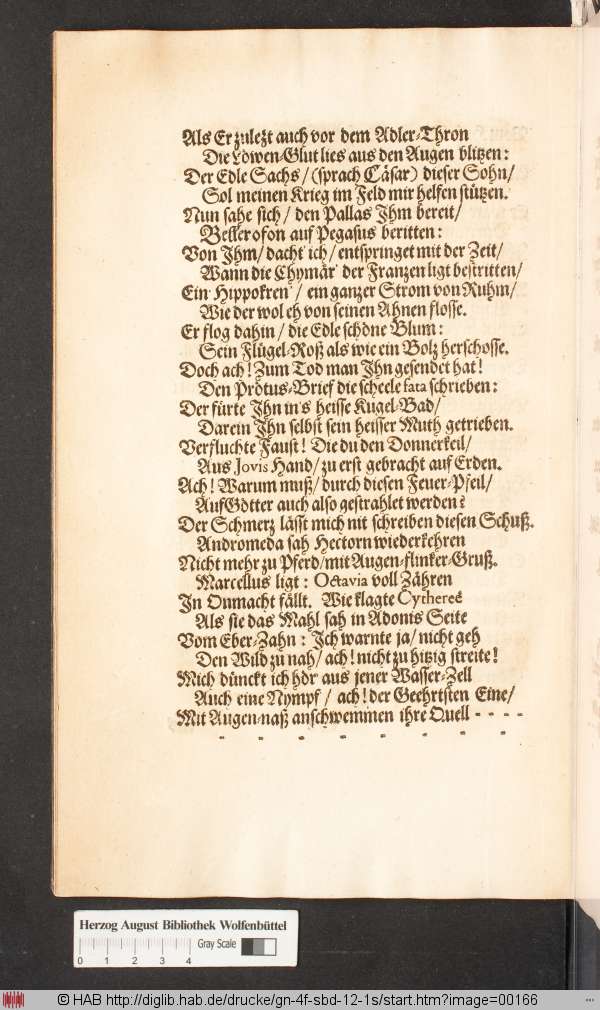 Als Er zuletzt auch vor dem Adler-Thron
Die Löwen-Glut lies aus den Augen blitzen:
Der Edle Sachs/ (sprach Cäsar) dieser Sohn/
Sol meinen Krieg im Feld mir helfen stützen.
Nun sahe sich/ den Pallas Ihm bereit/
Bellerofon auf Pegasus beritten:
Von Ihm/ dacht ich/ entspringet mit der Zeit/
Wann die Chymär der Franzen ligt bestritten/
Ein Hippokren/ ein ganzer Strom von Ruhm/
Wie der wol eh von seinen Ahnen flosse.
Er flog dahin/ die Edle schöne Blum:
Sein Flügel-Roß als wie ein Bolz herschosse.
Doch ach! Zum Tod man Ihn gesendet hat!
Den Prötus-Brief die scheele fata schrieben:
Der fürte Ihn in's heisse Kugel-Bad/
Darein Ihn selbst sein heisser Muth getrieben.
Verfluchte Faust! Die du den Donnerkeil/
Aus Jovis Hand/ zu erst gebracht auf Erden.
Ach! Warum muß/ durch diesen Feuer-Pfeil/
Auf Götter auch also gestrahlet werden?
Der Schmerz lässt mich nit schreiben diesen Schuß.
Andromeda sah Hectorn wiederkehren
Nicht mehr zu Pferd/ mit Augen-flinker-Gruß.
Marcellus ligt: Octavia voll Zähren
In Onmacht fällt. Wie klagte Cythereê
Als sie das Mahl sah in Adonis Seite
Vom Eber-Zahn: Ich warnte ja/ nicht geh
Den Wild zu nah/ ach! nicht zu hitzig streite!
Mich dünckt ich hör aus jener Wasser-Zell
Auch eine Nympf/ ach! der Geehrtsten Eine/
Mit Augen-naß anschwemmen ihre Quell - - - -
- - - - - - - -
Herzog August Bibliothek Wolfenbüttel
Gray Scale
0 1 2 3 4
© HAB http://diglib.hab.de/drucke/gn-4f-sbd-12-1s/start.htm?image=00166